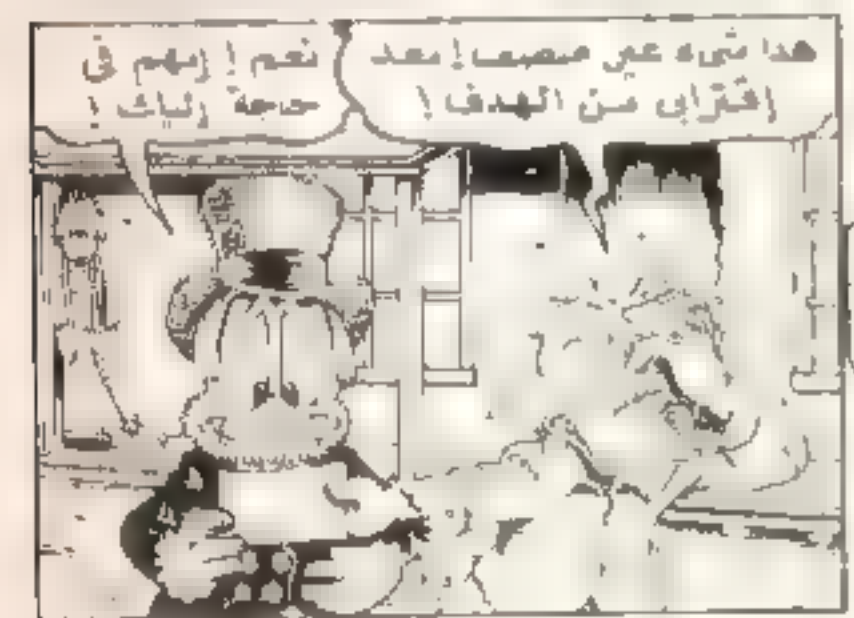 هذا شيء غير منصف! بعد
إقترابي من الهدف!
نعم! إنهم في
حاجة إليك!